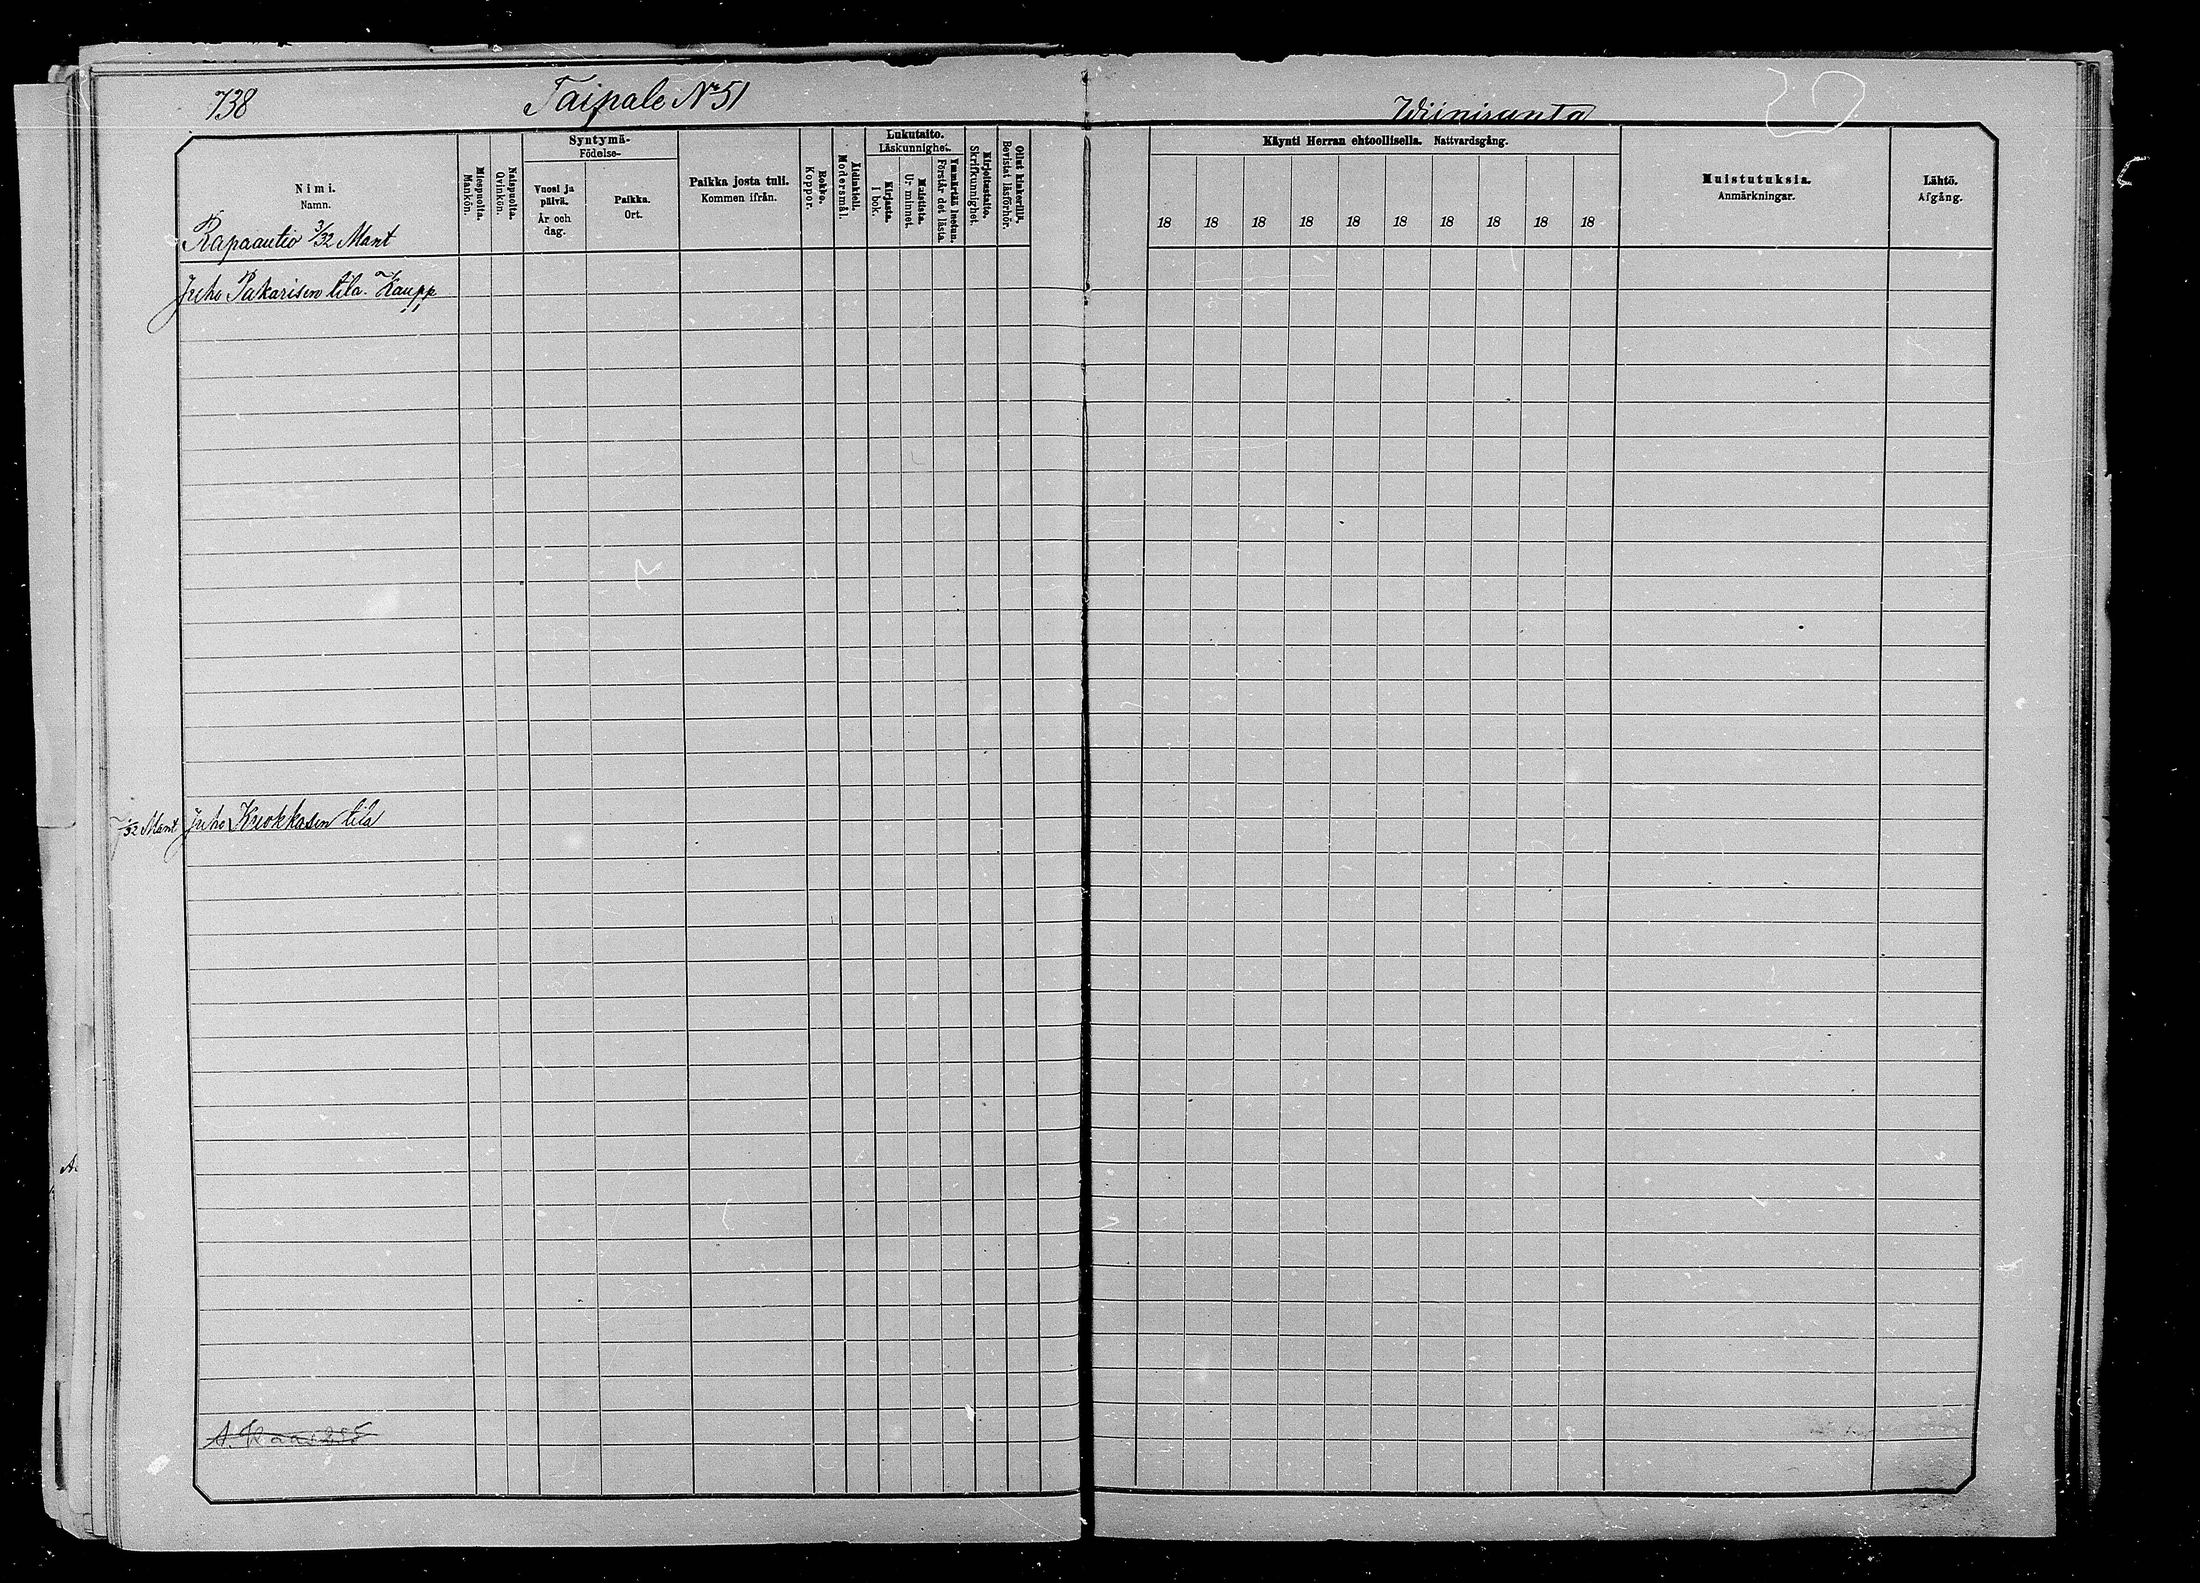 738
Taipale No 51
Wiiniranta
Nimi.
Namn.
Miespuolta.
Mankön.
Naispuolta.
Qvinkön.
Syntymä-
Födelse-
Vuosi ja
päivä.
År och
dag.
Paikka.
Ort.
Paikka josta tuli.
Kommen ifrån.
Rokko.
Koppor.
Äidinkieli.
Modersmål.
Lukutaito.
Läskunnighet.
Kirjasta.
I bok.
Muistista.
Ur minnet.
Ymmärtää luetun.
Förstår det lästa.
Kirjoitustaito.
Skrifkunnighet.
Ollut kinkerillä.
Bevistat läsförhör.
Käynti Herran ehtoollisella. Nattvardsgång.
18 18 18 18 18 18 18 18 18 18
Muistutuksia.
Anmärkningar.
Lähtö.
Afgång.
Rapaautio 3/32 Mant
Juho Pakarisen tila. Kaupp
1/32 Mant Juho Kuokkasen tila